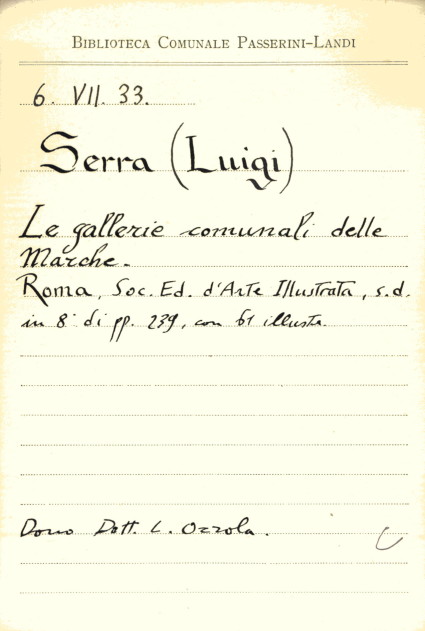 BIBLIOTECA COMUNALE PASSERINI-LANDI
6. VII. 33.
Serra (Luigi)
Le gallerie comunali delle
Marche.
Roma, Soc. Ed. d'Arte Illustrata, s.d.
in 8° di pp. 239, con 61 illustr.
Dono Dott. L. Ozzola.